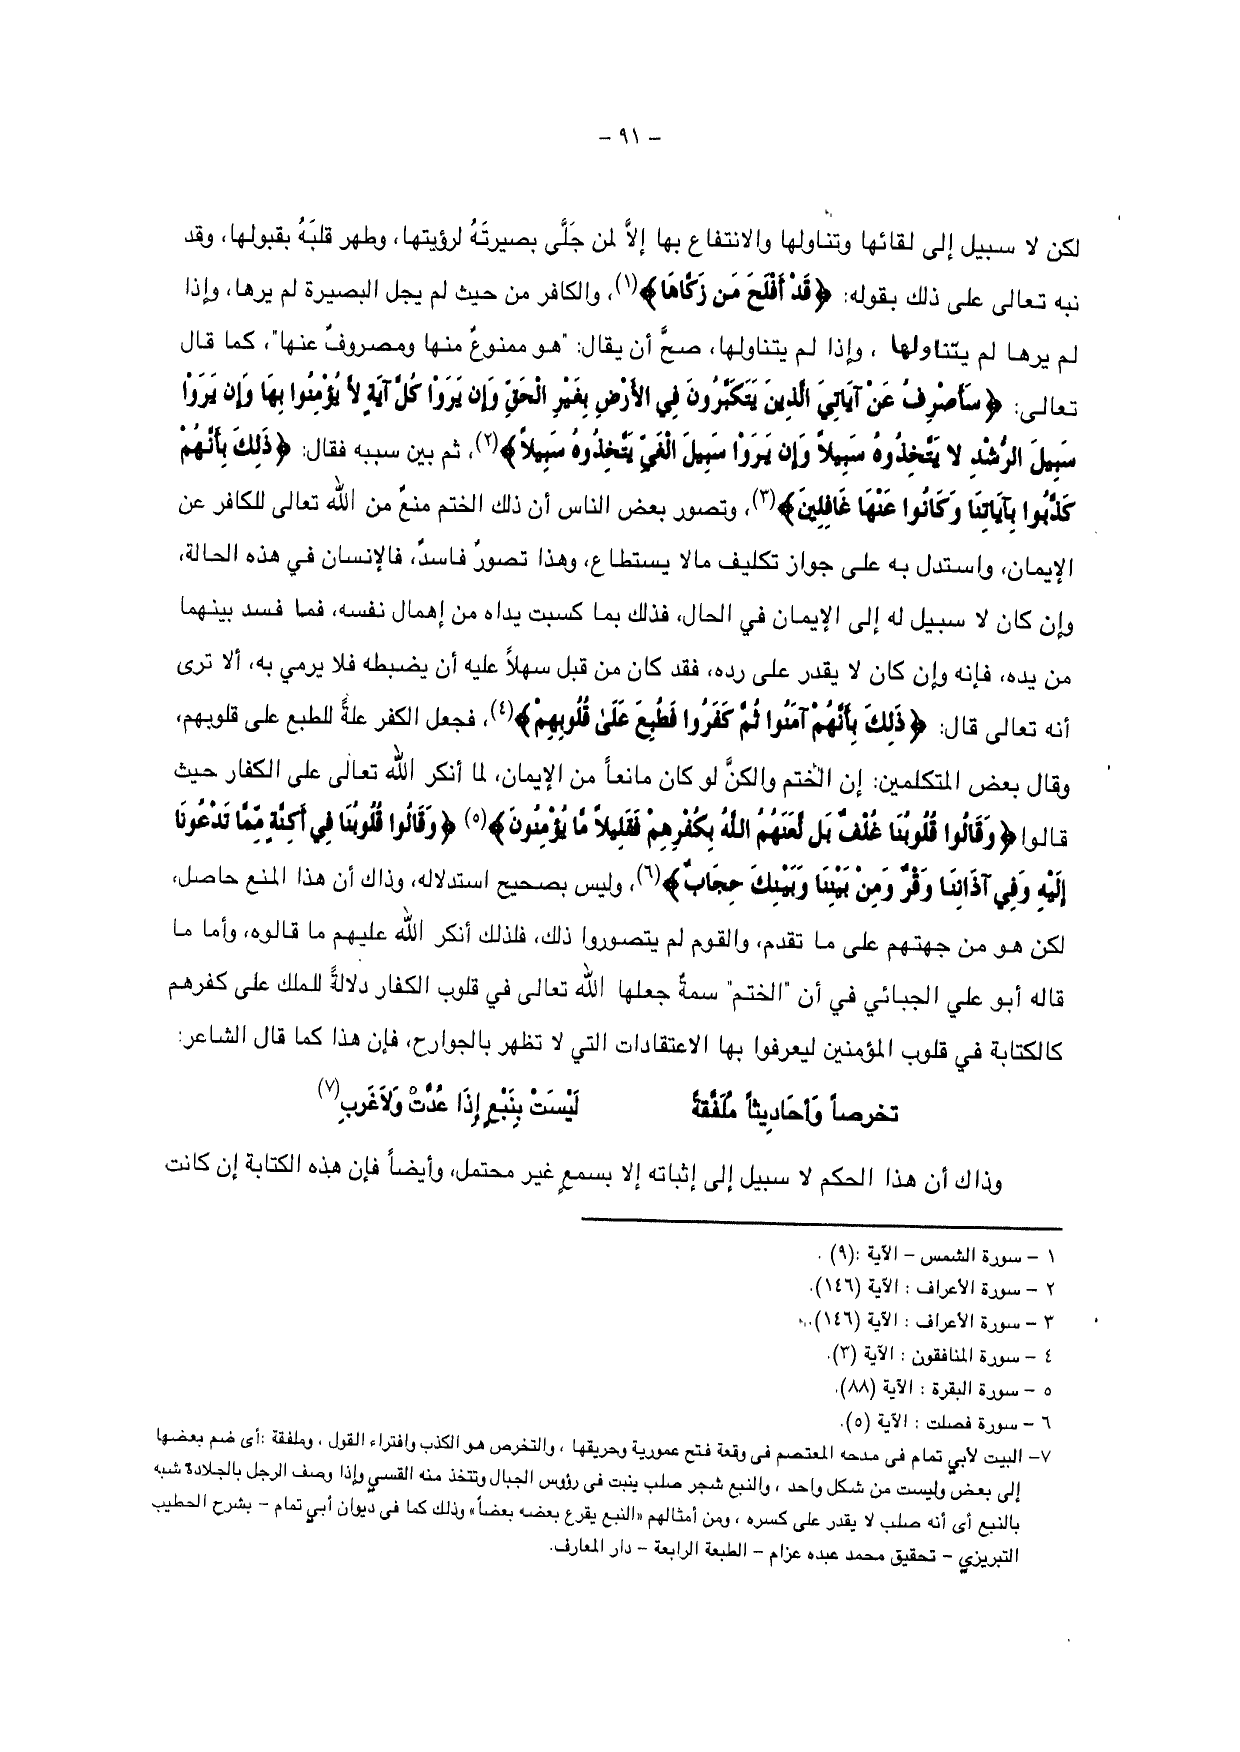 – ٩١ –
لكن لا سبيل إلى لقائها وتناولها والانتفاع بها إلاَّ لمن جَلَّى بصيرتَهُ لرؤيتها، وطهر قلبَهُ بقبولها، وقد
نبه تعالى على ذلك بقوله: ﴿قَدْ أَفْلَحَ مَن زَكَّاهَا﴾(١)، والكافر من حيث لم يجل البصيرة لم يرها، وإذا
لم يرها لم يتناولها ، وإذا لم يتناولها، صحَّ أن يقال: "هو ممنوعٌ منها ومصروفٌ عنها"، كما قال
تعالى: ﴿سَأَصْرِفُ عَنْ آيَاتِيَ الَّذِينَ يَتَكَبَّرُونَ فِي الأَرْضِ بِغَيْرِ الْحَقِّ وَإِن يَرَوْا كُلَّ آيَةٍ لاَّ يُؤْمِنُوا بِهَا وَإِن يَرَوْا
سَبِيلَ الرُّشْدِ لا يَتَّخِذُوهُ سَبِيلاً وَإِن يَرَوْا سَبِيلَ الْغَيِّ يَتَّخِذُوهُ سَبِيلاً﴾(٢)، ثم بين سببه فقال: ﴿ذَلِكَ بِأَنَّهُمْ
كَذَّبُوا بِآيَاتِنَا وَكَانُوا عَنْهَا غَافِلِينَ﴾(٣)، وتصور بعض الناس أن ذلك الختم منعٌ من الله تعالى للكافر عن
الإيمان، واستدل به على جواز تكليف مالا يستطاع، وهذا تصورٌ فاسدٌ، فالإنسان في هذه الحالة،
وإن كان لا سبيل له إلى الإيمان في الحال، فذلك بما كسبت يداه من إهمال نفسه، فما فسد بينهما
من يده، فإنه وإن كان لا يقدر على رده، فقد كان من قبل سهلاً عليه أن يضبطه فلا يرمي به، ألا ترى
أنه تعالى قال: ﴿ذَلِكَ بِأَنَّهُمْ آمَنُوا ثُمَّ كَفَرُوا فَطُبِعَ عَلَىٰ قُلُوبِهِمْ﴾(٤)، فجعل الكفر علةً للطبع على قلوبهم،
وقال بعض المتكلمين: إن الختم والكنَّ لو كان مانعاً من الإيمان، لما أنكر الله تعالى على الكفار حيث
قالوا ﴿وَقَالُوا قُلُوبُنَا غُلْفٌ بَل لَّعَنَهُمُ اللَّهُ بِكُفْرِهِمْ فَقَلِيلاً مَّا يُؤْمِنُونَ﴾(٥) ﴿وَقَالُوا قُلُوبُنَا فِي أَكِنَّةٍ مِّمَّا تَدْعُونَا
إِلَيْهِ وَفِي آذَانِنَا وَقْرٌ وَمِنْ بَيْنِنَا وَبَيْنِكَ حِجَابٌ﴾(٦)، وليس بصحيح استدلاله، وذاك أن هذا المنع حاصل،
لكن هو من جهتهم على ما تقدم، والقوم لم يتصوروا ذلك، فلذلك أنكر الله عليهم ما قالوه، وأما ما
قاله أبو علي الجبائي في أن "الختم" سمةٌ جعلها الله تعالى في قلوب الكفار دلالةً للملك على كفرهم
كالكتابة في قلوب المؤمنين ليعرفوا بها الاعتقادات التي لا تظهر بالجوارح، فإن هذا كما قال الشاعر:
تخرصاً وَأَحَادِيثاً مُلَفَّقةً لَيْسَتْ بِنَبْعٍ إِذَا عُدَّتْ وَلاَغَرَبِ(٧)
وذاك أن هذا الحكم لا سبيل إلى إثباته إلا بسمعٍ غير محتمل، وأيضاً فإن هذه الكتابة إن كانت
١ – سورة الشمس – الآية :(٩) .
٢ – سورة الأعراف : الآية (١٤٦).
٣ – سورة الأعراف : الآية (١٤٦).
٤ – سورة المنافقون : الآية (٣).
٥ – سورة البقرة : الآية (٨٨).
٦ – سورة فصلت : الآية (٥).
٧– البيت لأبي تمام فى مدحه المعتصم فى وقعة فتح عمورية وحريقها ، والتخرص هو الكذب وافتراء القول ، وملفقة :أى ضم بعضها
إلى بعض وليست من شكل واحد ، والنبع شجر صلب ينبت فى رؤوس الجبال وتتخذ منه القسي وإذا وصف الرجل بالجلادة شبه
بالنبع أى أنه صلب لا يقدر على كسره ، ومن أمثالهم «النبع يقرع بعضه بعضاً» وذلك كما فى ديوان أبي تمام – بشرح الخطيب
التبريزي – تحقيق محمد عبده عزام – الطبعة الرابعة – دار المعارف.